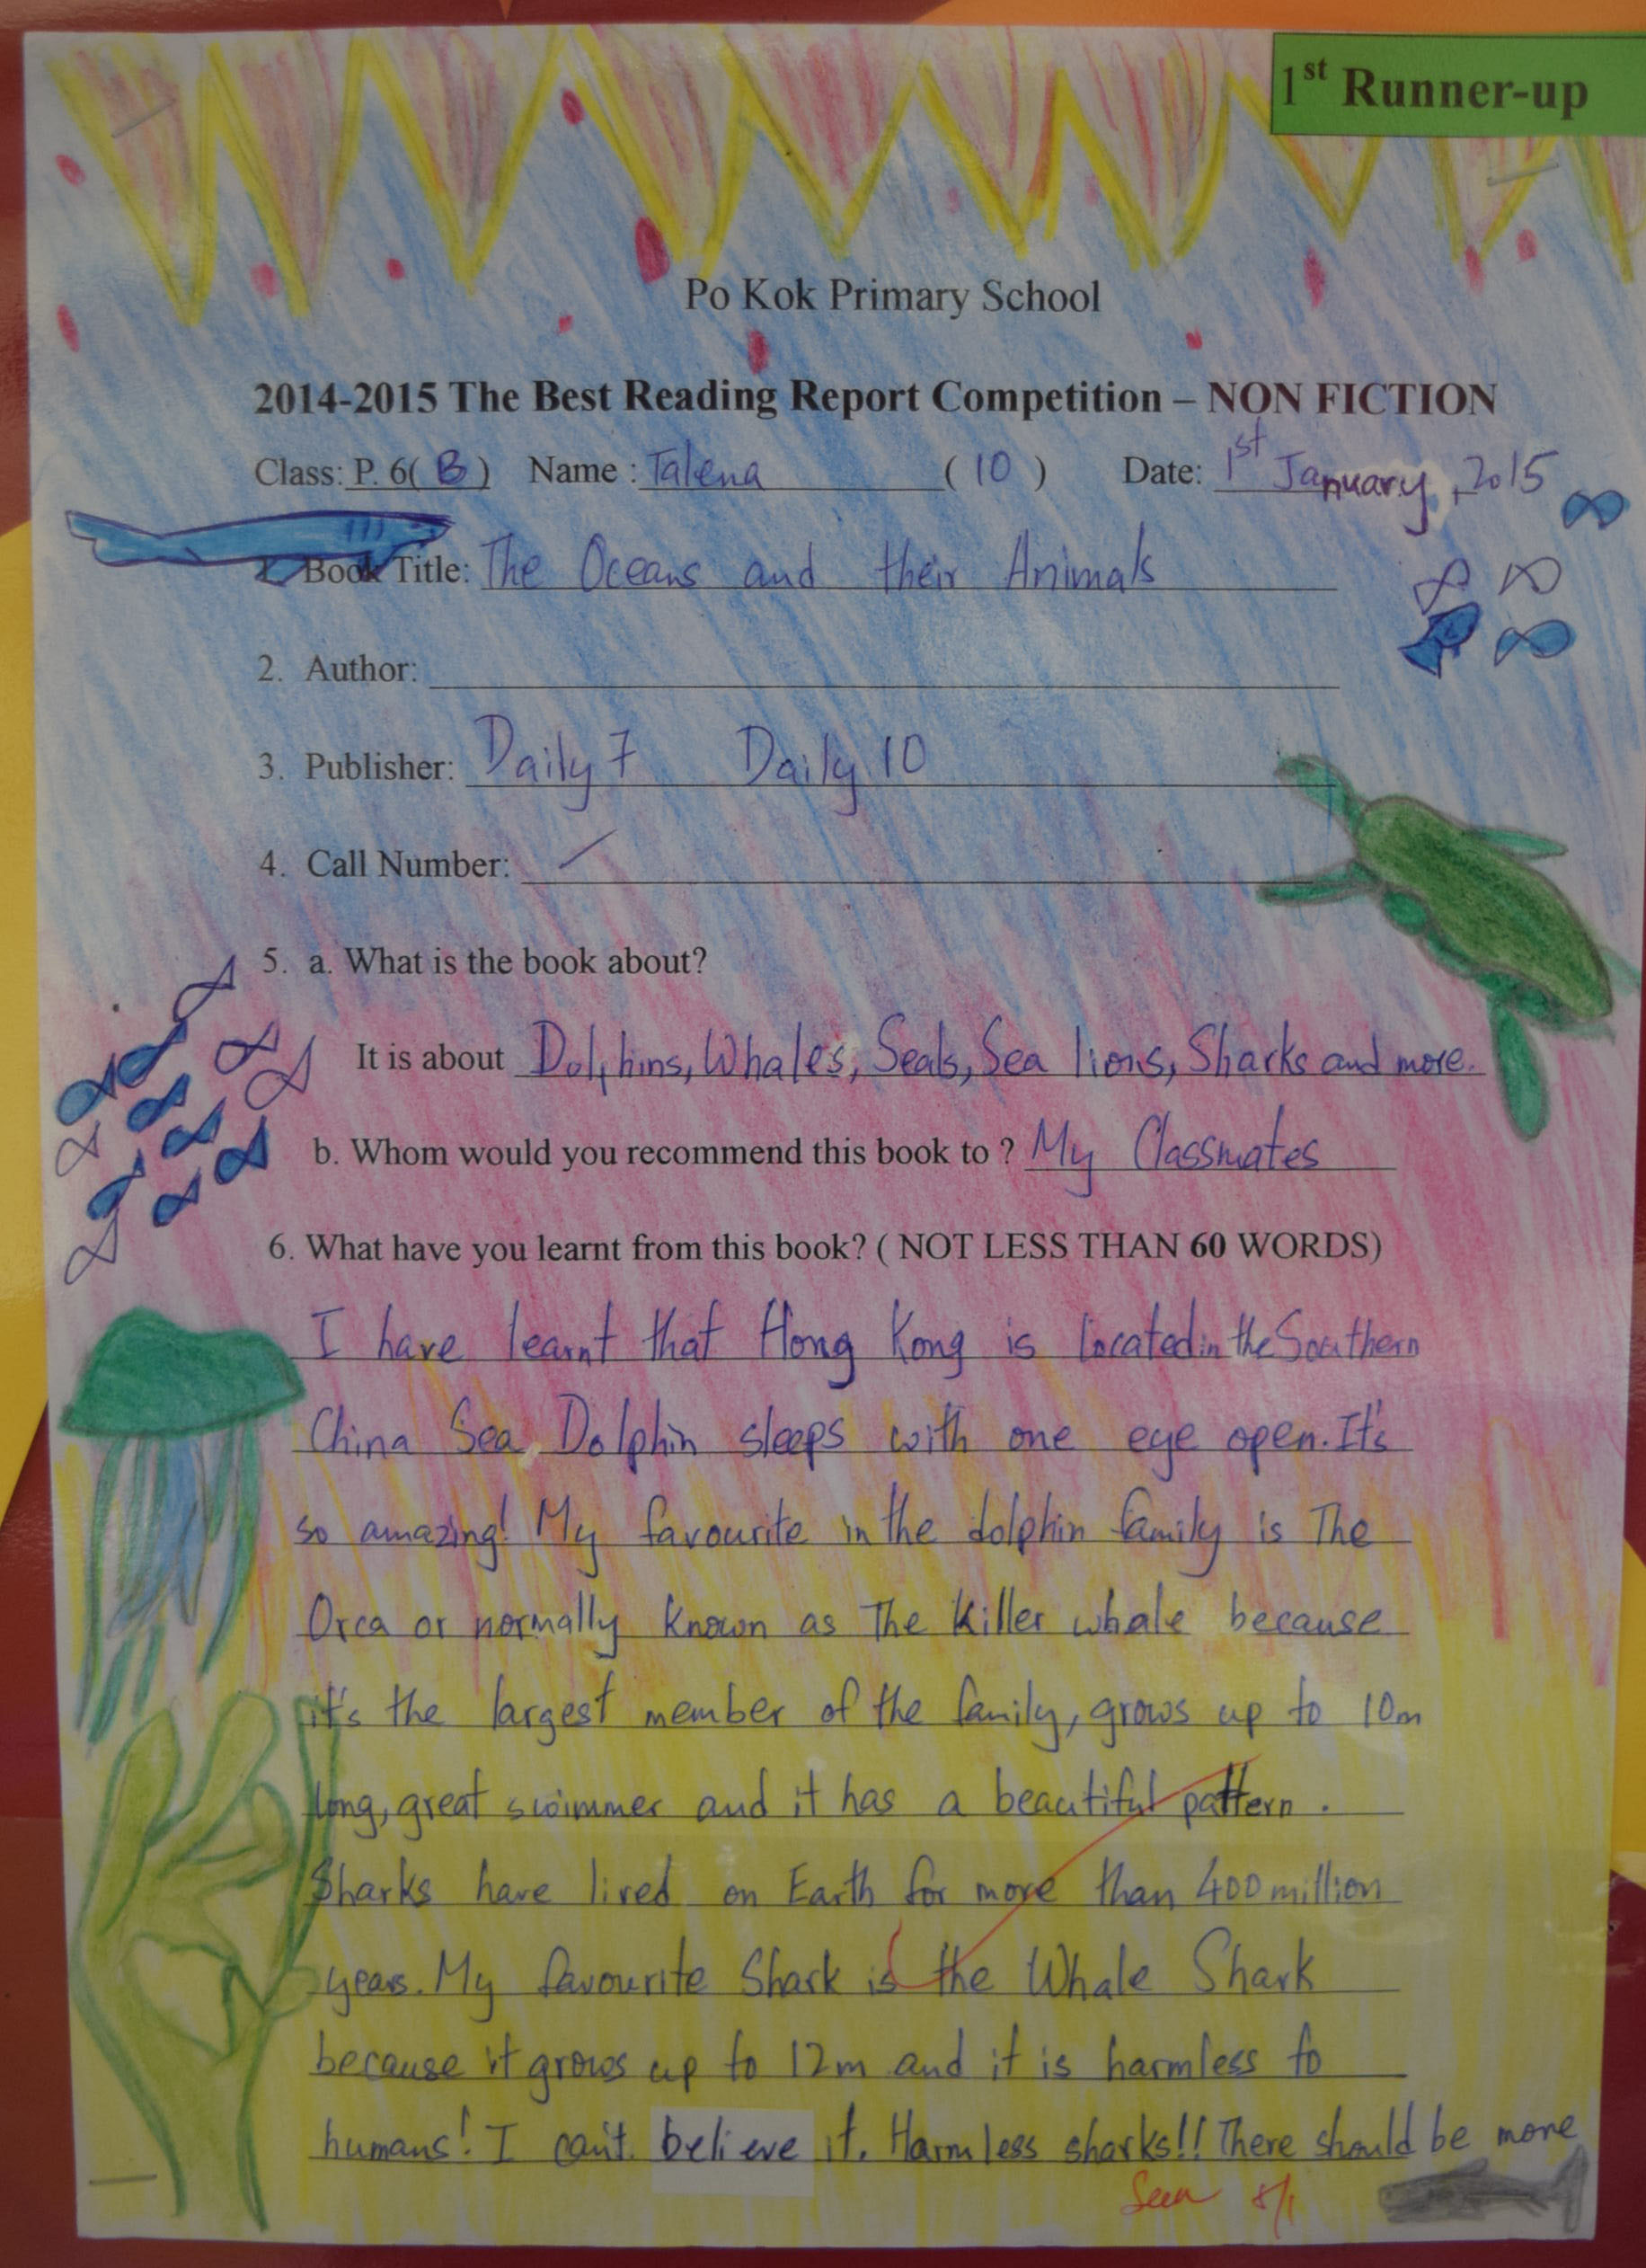 1st Runner-up
Po Kok Primary School
2014-2015 The Best Reading Report Competition – NON FICTION
Class: P. 6( B ) Name : Talena ( 10 ) Date: 1st January, 2015
1. Book Title: The Oceans and their Animals
2. Author:
3. Publisher: Daily 7 Daily 10
4. Call Number: /
5. a. What is the book about?
It is about Dolphins, Whales, Seals, Sea lions, Sharks and more.
b. Whom would you recommend this book to ? My Classmates
6. What have you learnt from this book? ( NOT LESS THAN 60 WORDS)
I have learnt that Hong Kong is located in the Southern
China Sea. Dolphin sleeps with one eye open. It's
so amazing! My favourite in the dolphin family is The
Orca or normally known as The Killer whale because
it's the largest member of the family, grows up to 10m
long, great swimmer and it has a beautiful pattern.
Sharks have lived on Earth for more than 400 million
years. My favourite Shark is the Whale Shark
because it grows up to 12m and it is harmless to
humans! I can't believe it. Harmless sharks!! There should be more
Seen 8/1